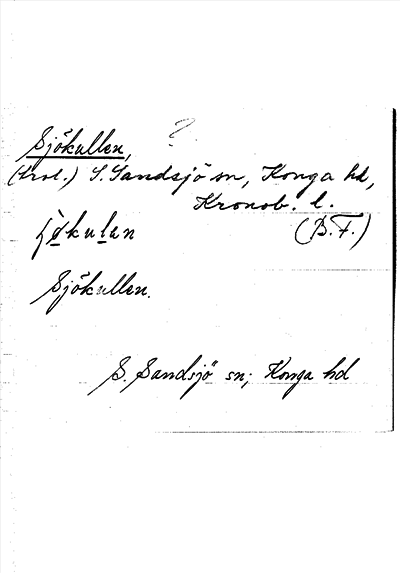 Sjökullen, ?
(Krol.) S. Sandsjö sn, Konga hd,
Kronob. l.
(B. F.)
Sjökullen.
S. Sandsjö sn; Konga hd